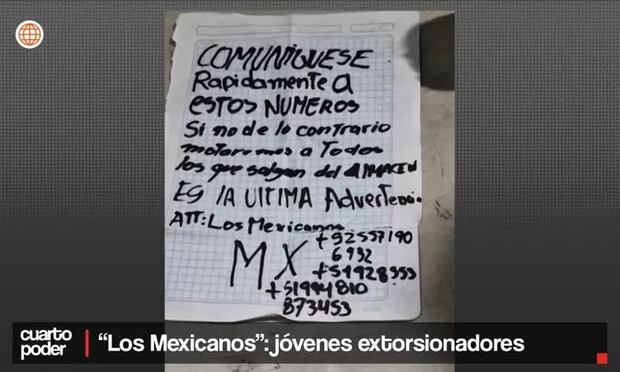 COMUNIQUESE
Rapidamente a
ESTOS NUMEROS
Si no de lo contrario
mataremos a Todos
los que salgan del ALMACEN
ES LA ULTIMA Advertencia
ATT: Los Mexicanos
MX
+52557190
6932
+51928353
+51944810
873453
cuarto
poder
“Los Mexicanos”: jóvenes extorsionadores